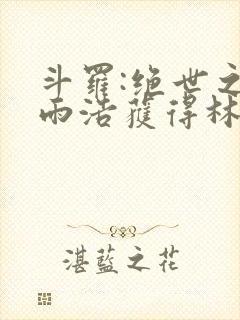 斗羅:绝世之
雨浩獲得林
湛藍之花